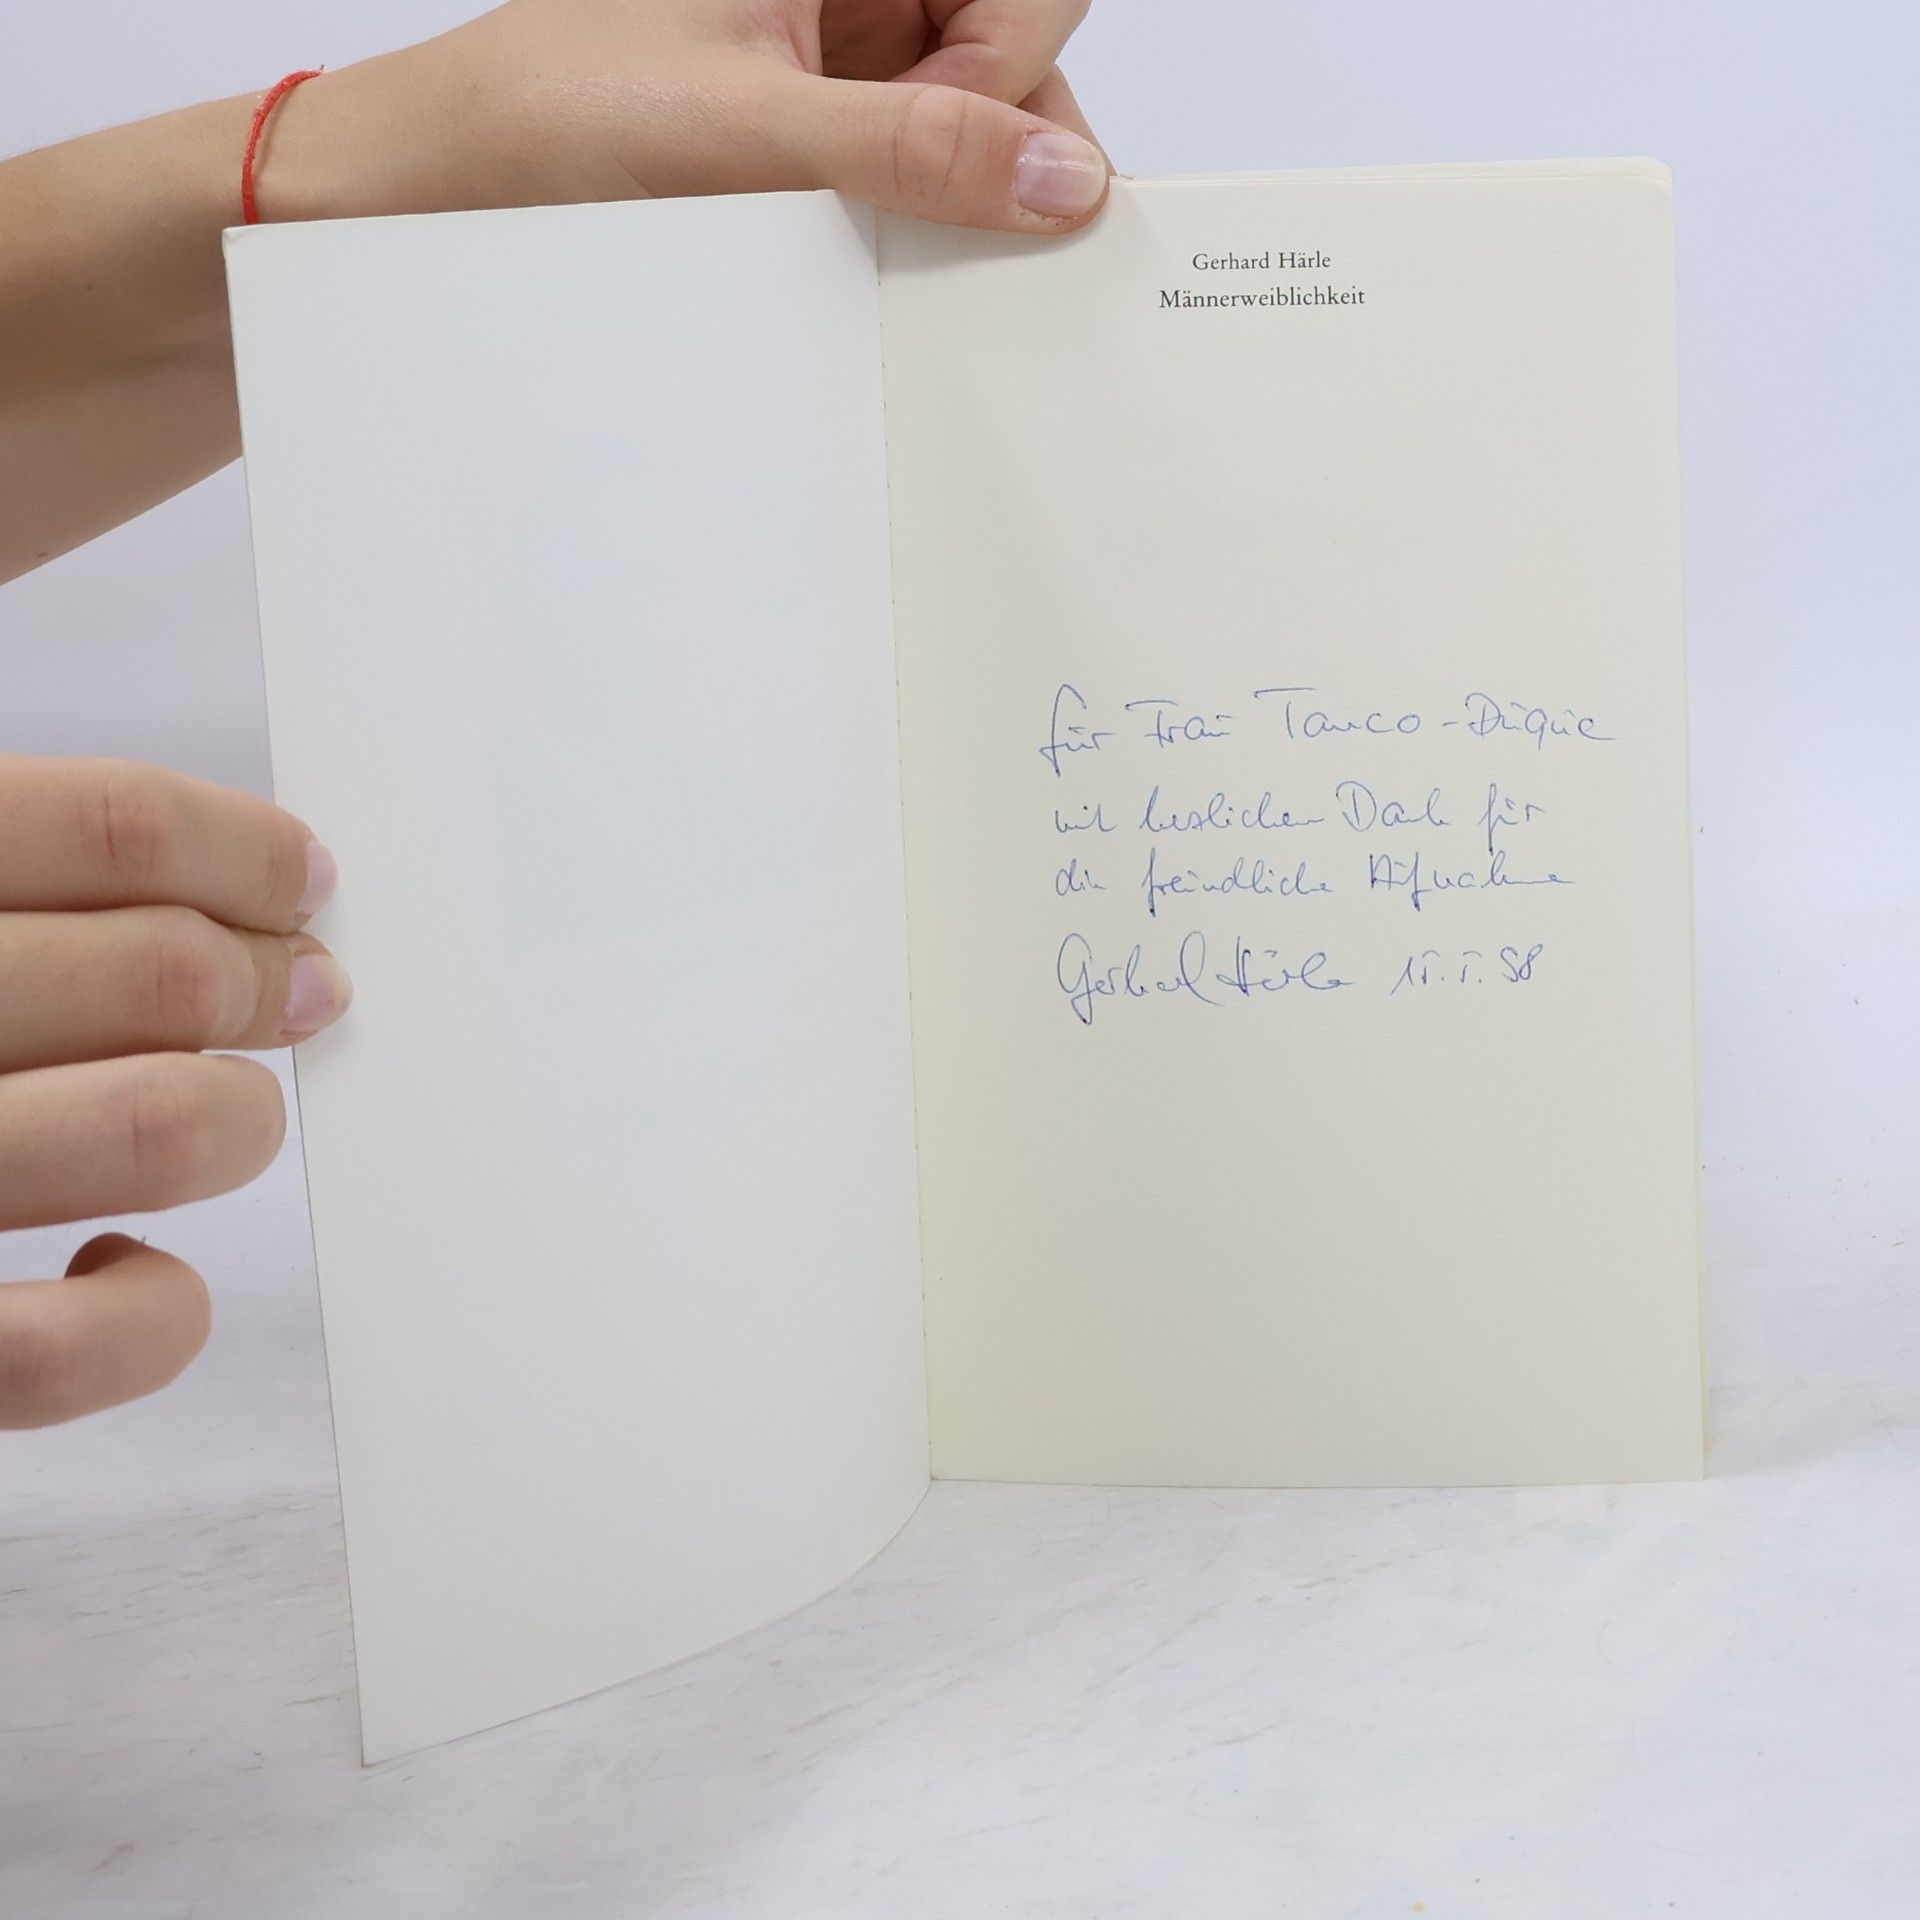 Gerhard Härle
Männerweiblichkeit
für Frau Tanco-Duque
mit herzlichem Dank für
die freundliche Aufnahme
Gerhard Härle 15.5.98